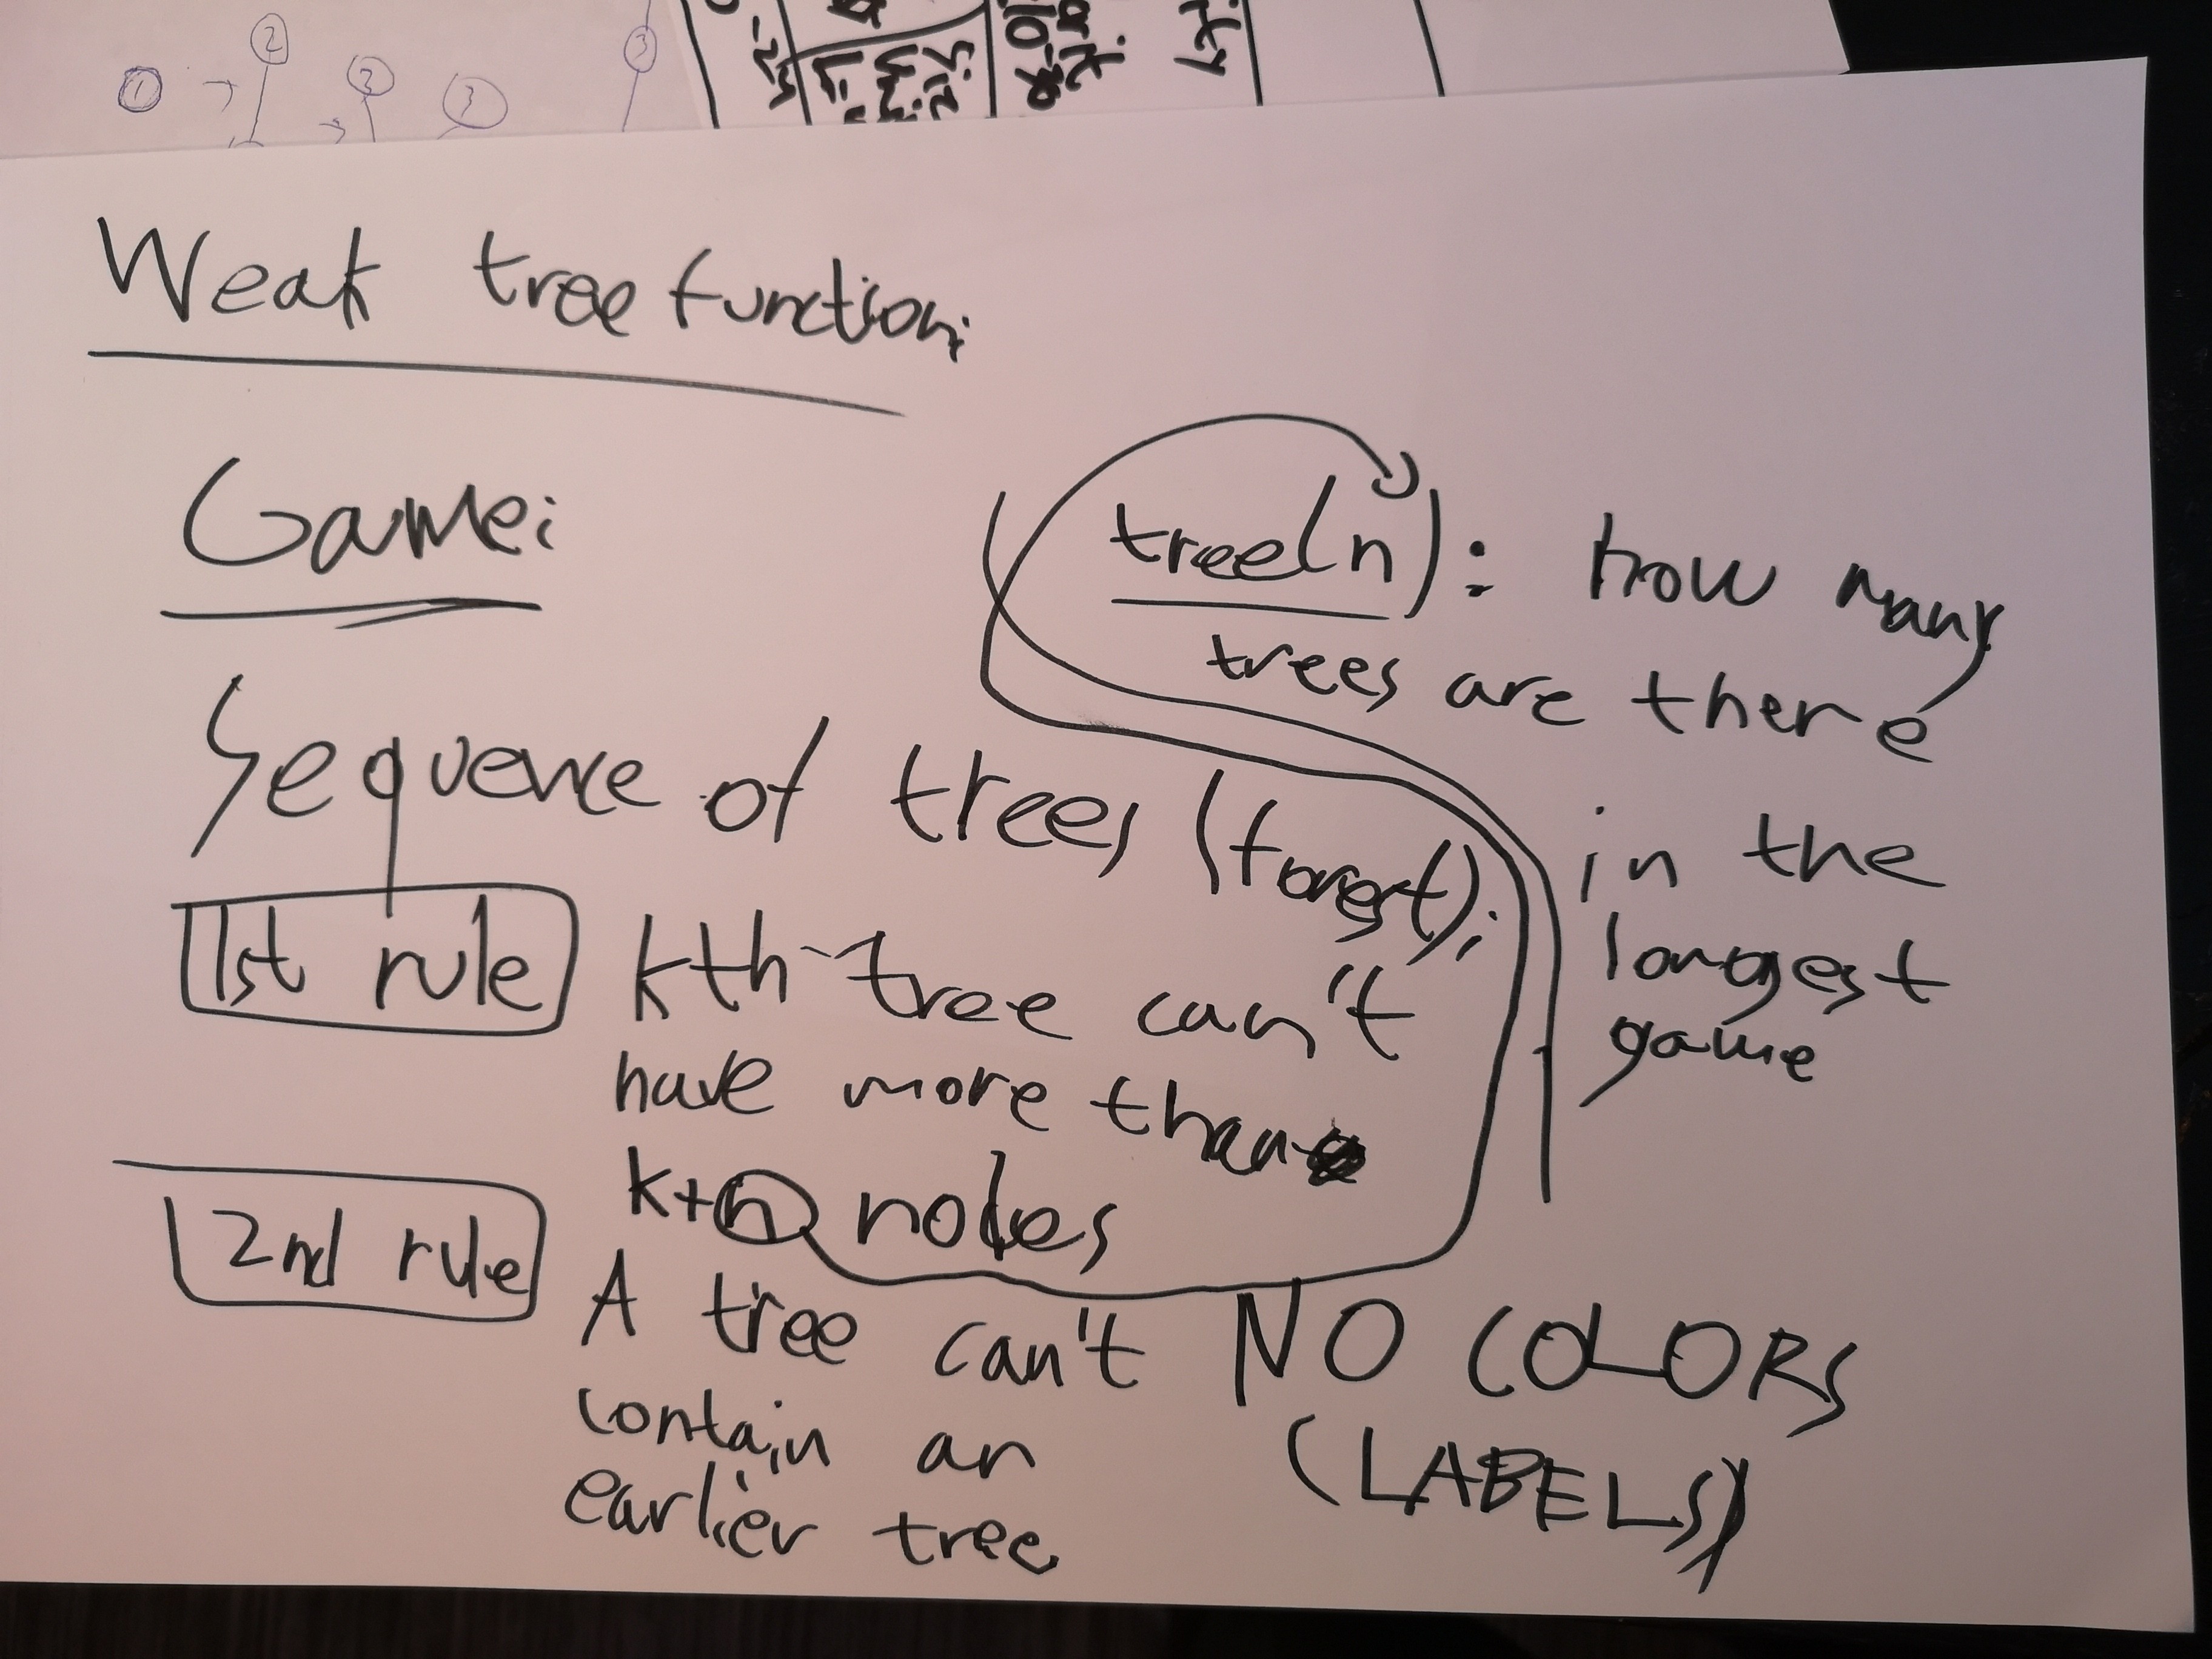 1 2 2 3 3
Weak tree function:
Game:
Sequence of trees (forest):
1st rule kth tree can't
have more than
k+n nodes
2nd rule A tree can't
contain an
earlier tree
tree(n): how many
trees are there
in the
longest
game
NO COLORS
(LABELS)